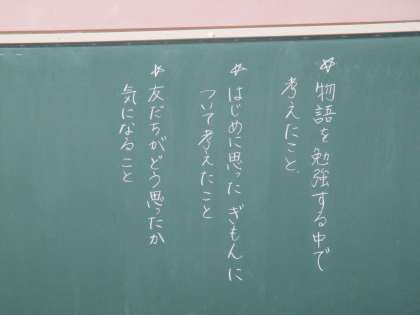 ☆物語を勉強する中で
考えたこと、
☆はじめに思ったぎもんに
ついて考えたこと
☆友だちがどう思ったか
気になること